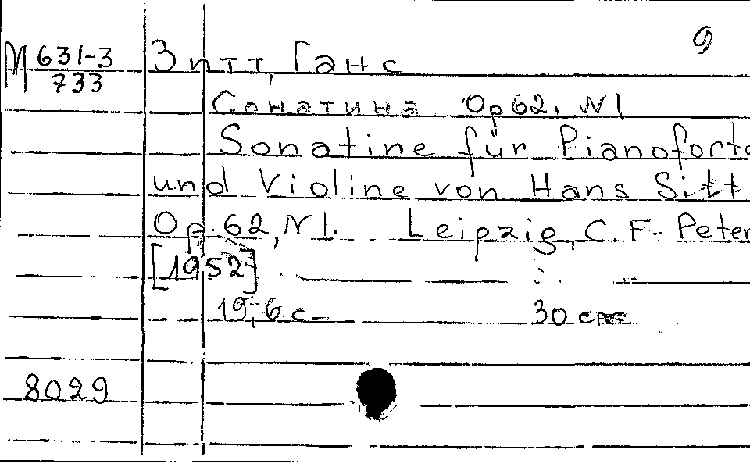 9
М 631-3
733
Зитт, Ганс
Сонатина Op 62. N1
Sonatine für Pianoforte
und Violine von Hans Sitt
Op. 62, N1. Leipzig, C. F. Peter
[1952]
19, 6 c- 30 см
8029